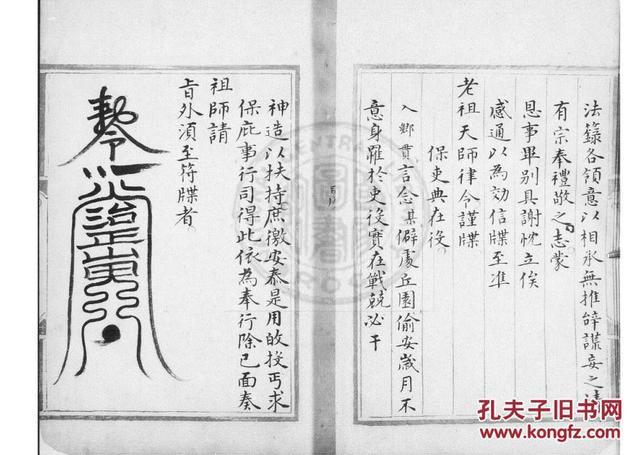 法籙各領意以相承無推辞謀妄之
有宗奉禮敬之志蒙
恩事畢别具謝忱立俟
感通以為効信牒至准
老祖天師律令謹牒
保吏典在役
入鄉貫言念某僻處丘園偷安歲月不
意身罹於吏役實在戰兢必干
神造以扶持庶徼安泰是用的投丐求
保庇事行司得此依為奉行除已面奏
祖師請
旨外須至符牒者
敕令
孔夫子旧书网
www.kongfz.com